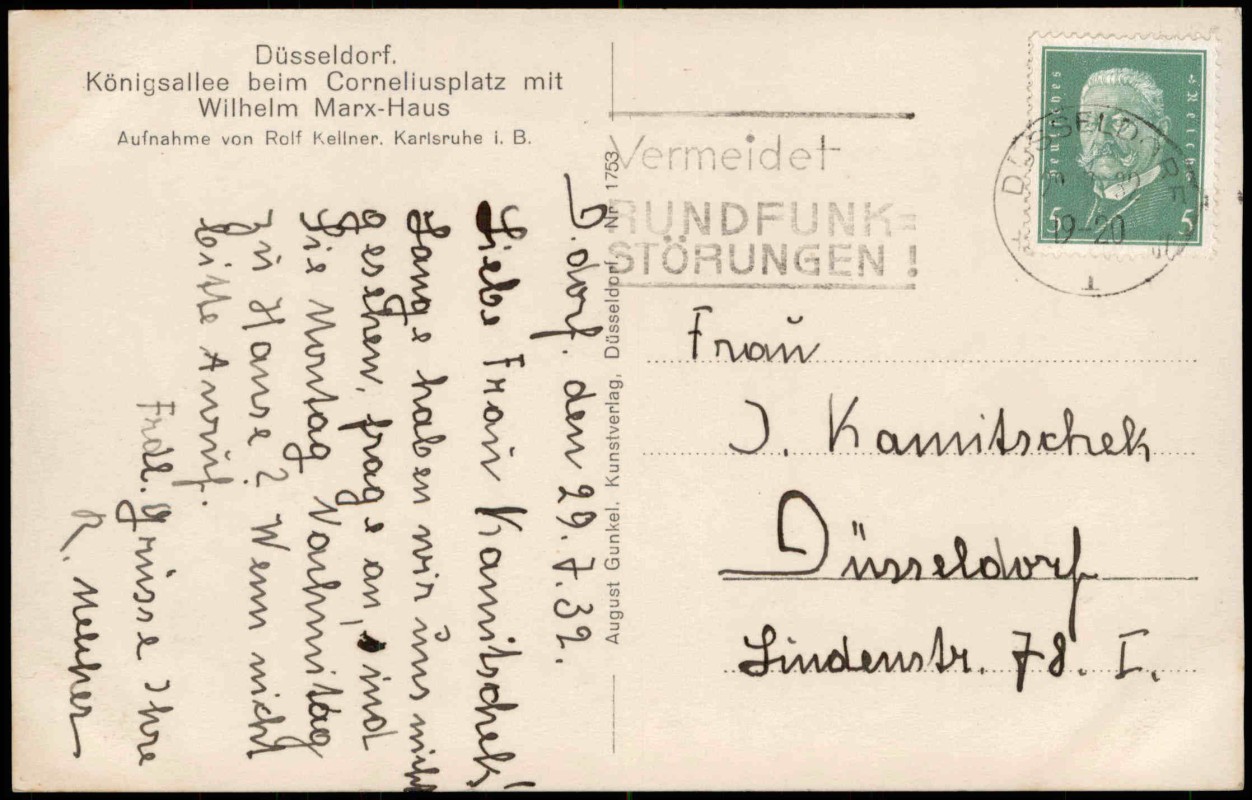 Düsseldorf.
Königsallee beim Corneliusplatz mit
Wilhelm Marx-Haus
Aufnahme von Rolf Kellner, Karlsruhe i. B.
D.dorf. den 29.7.32.
Liebe Frau Kamitschek!
Lange haben wir uns nicht
gesehen, frage an, sind
Sie Montag Nachmittag
zu Hause? Wenn nicht
bitte Anruf.
Frdl. Grüsse Ihre
R. Melcher
August Gunkel, Kunstverlag, Düsseldorf Nr. 1753
Vermeidet
RUNDFUNK=
STÖRUNGEN!
Deutsches Reich
5 5
DÜSSELDORF
19-20
1
Frau
J. Kamitschek
Düsseldorf
Lindenstr. 78. I.